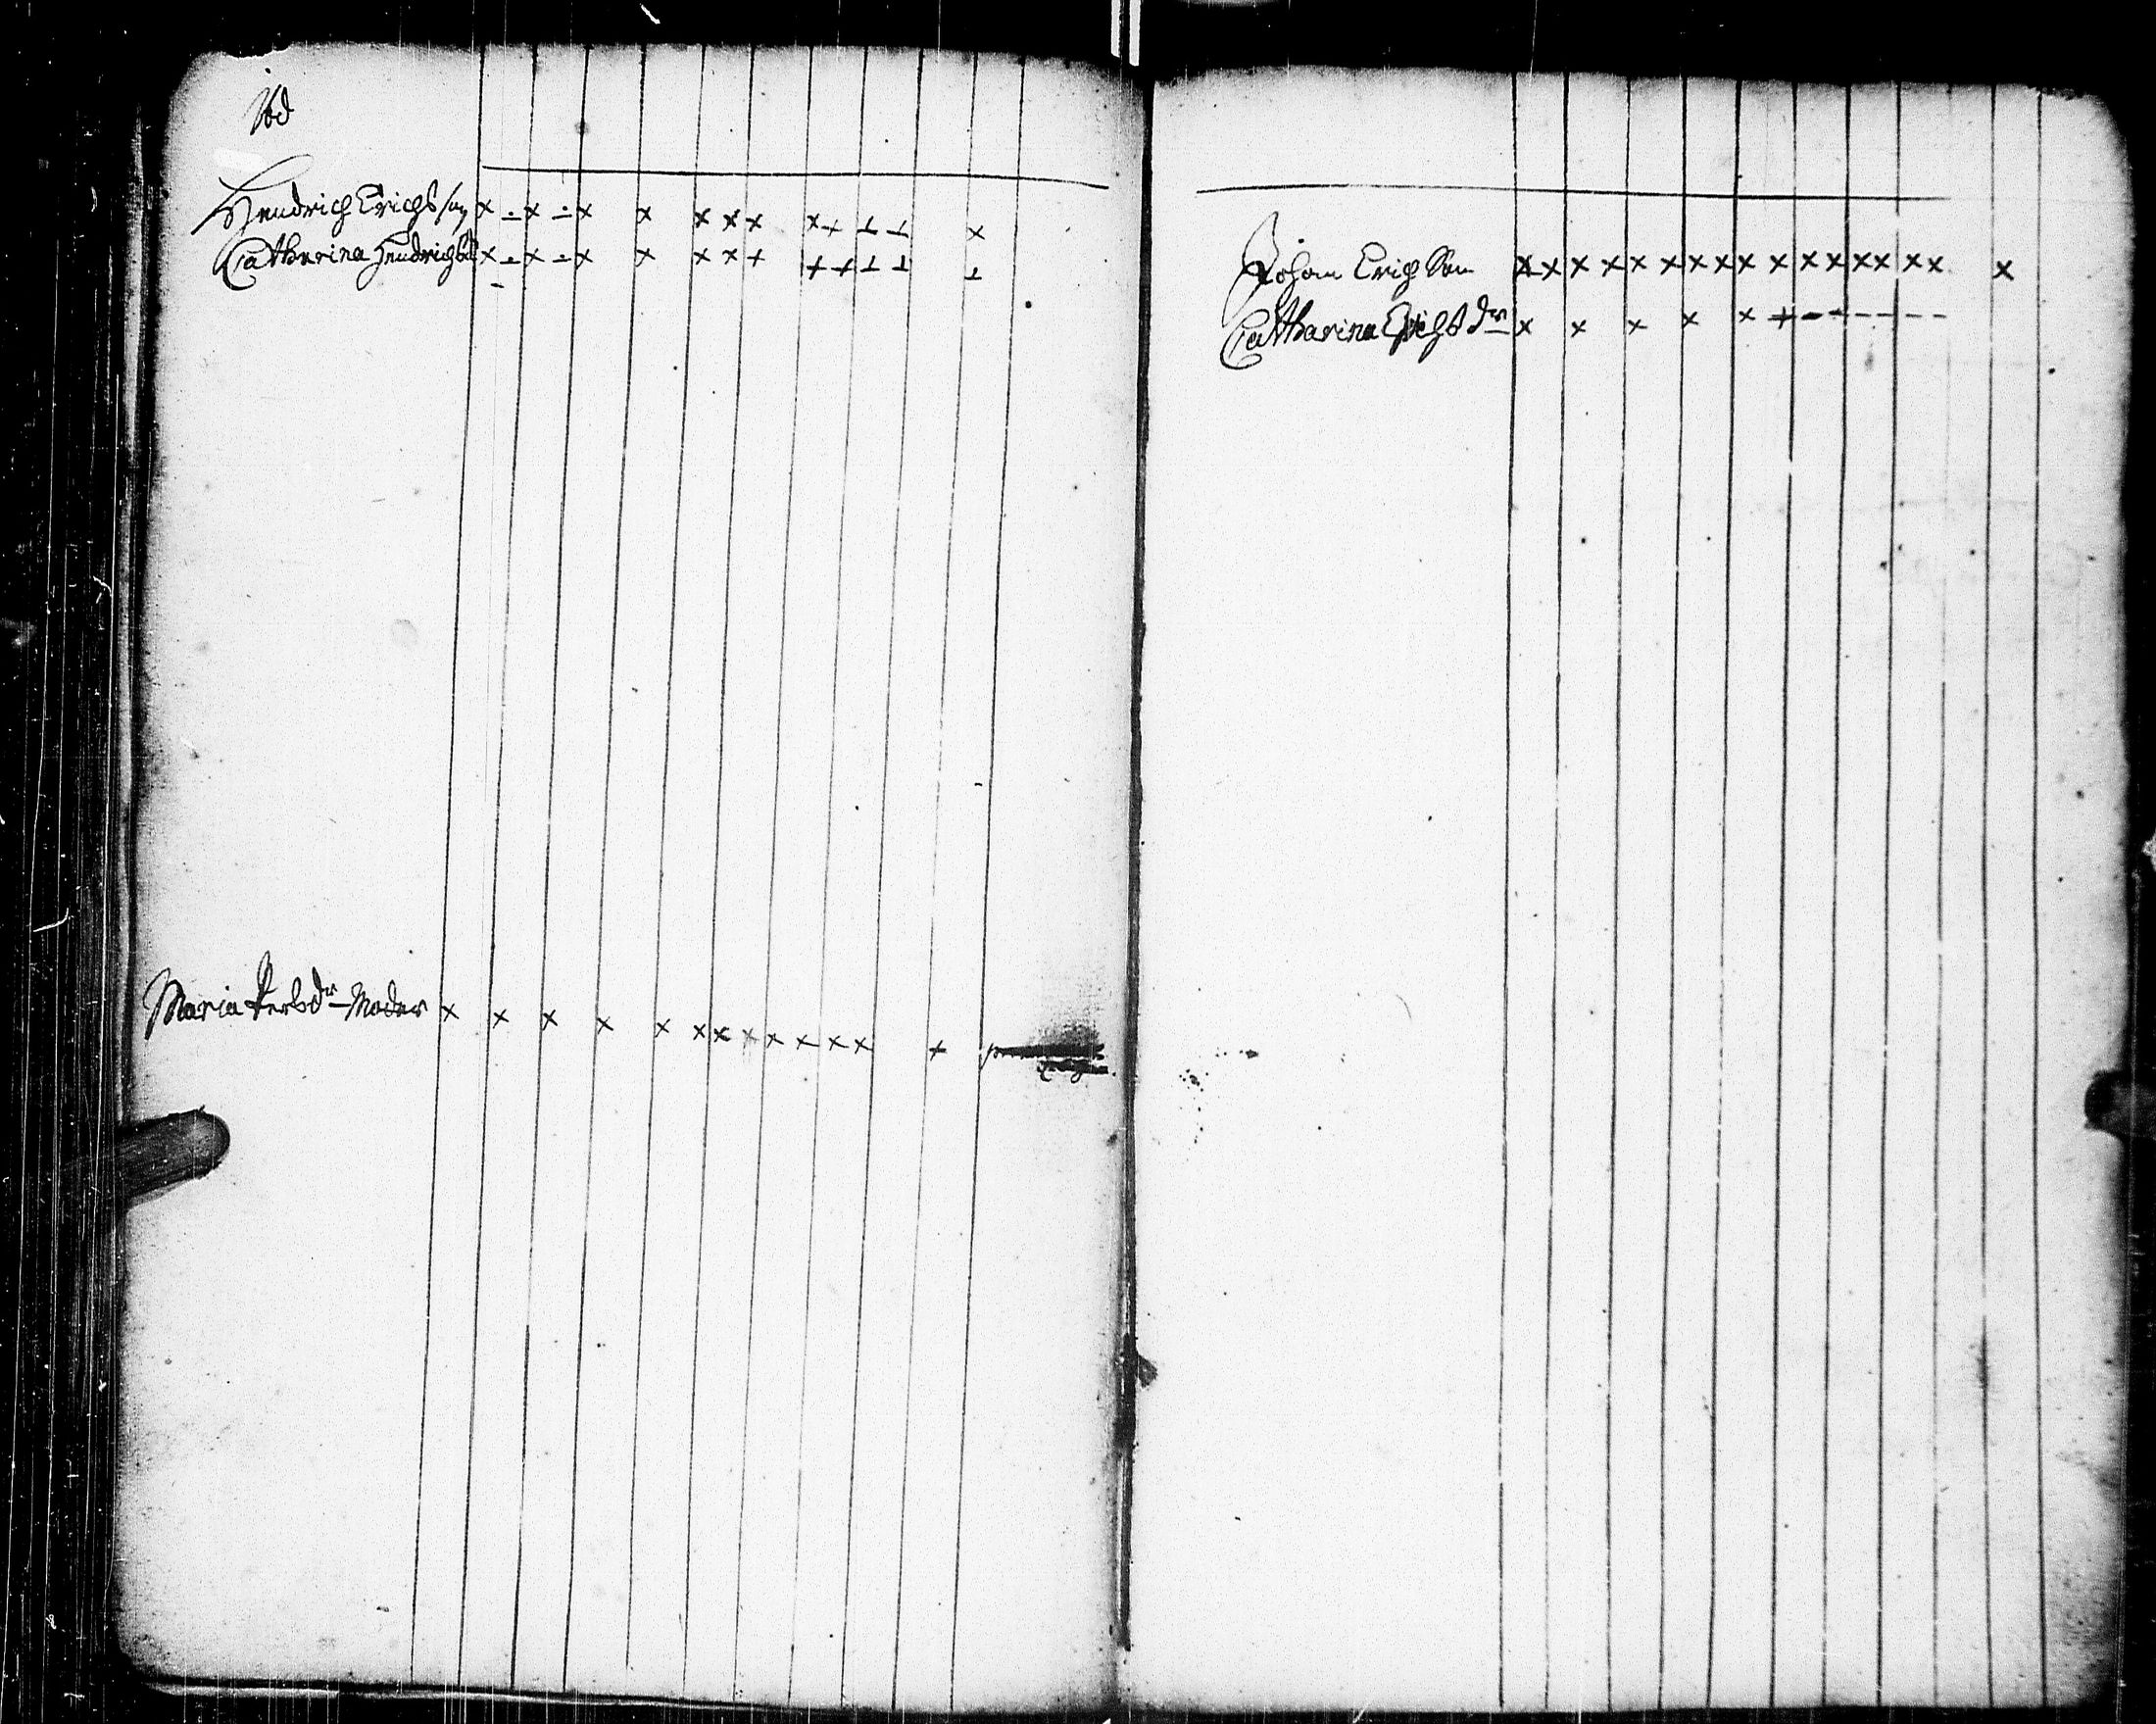 Hendrich Erichsson x ÷ x ÷ x x x x x x + ⊥ ⊥ x
Catharina Hendrichsd x ÷ x ÷ x x x x + + + ⊥ ⊥ ⊥
Maria Persdr Moder x x x x x x x x x x x x +
Johan Erich Son x x x x x x x x x x x x x x x x x
Catharina Erichsdr x x x x x + - - - - - -